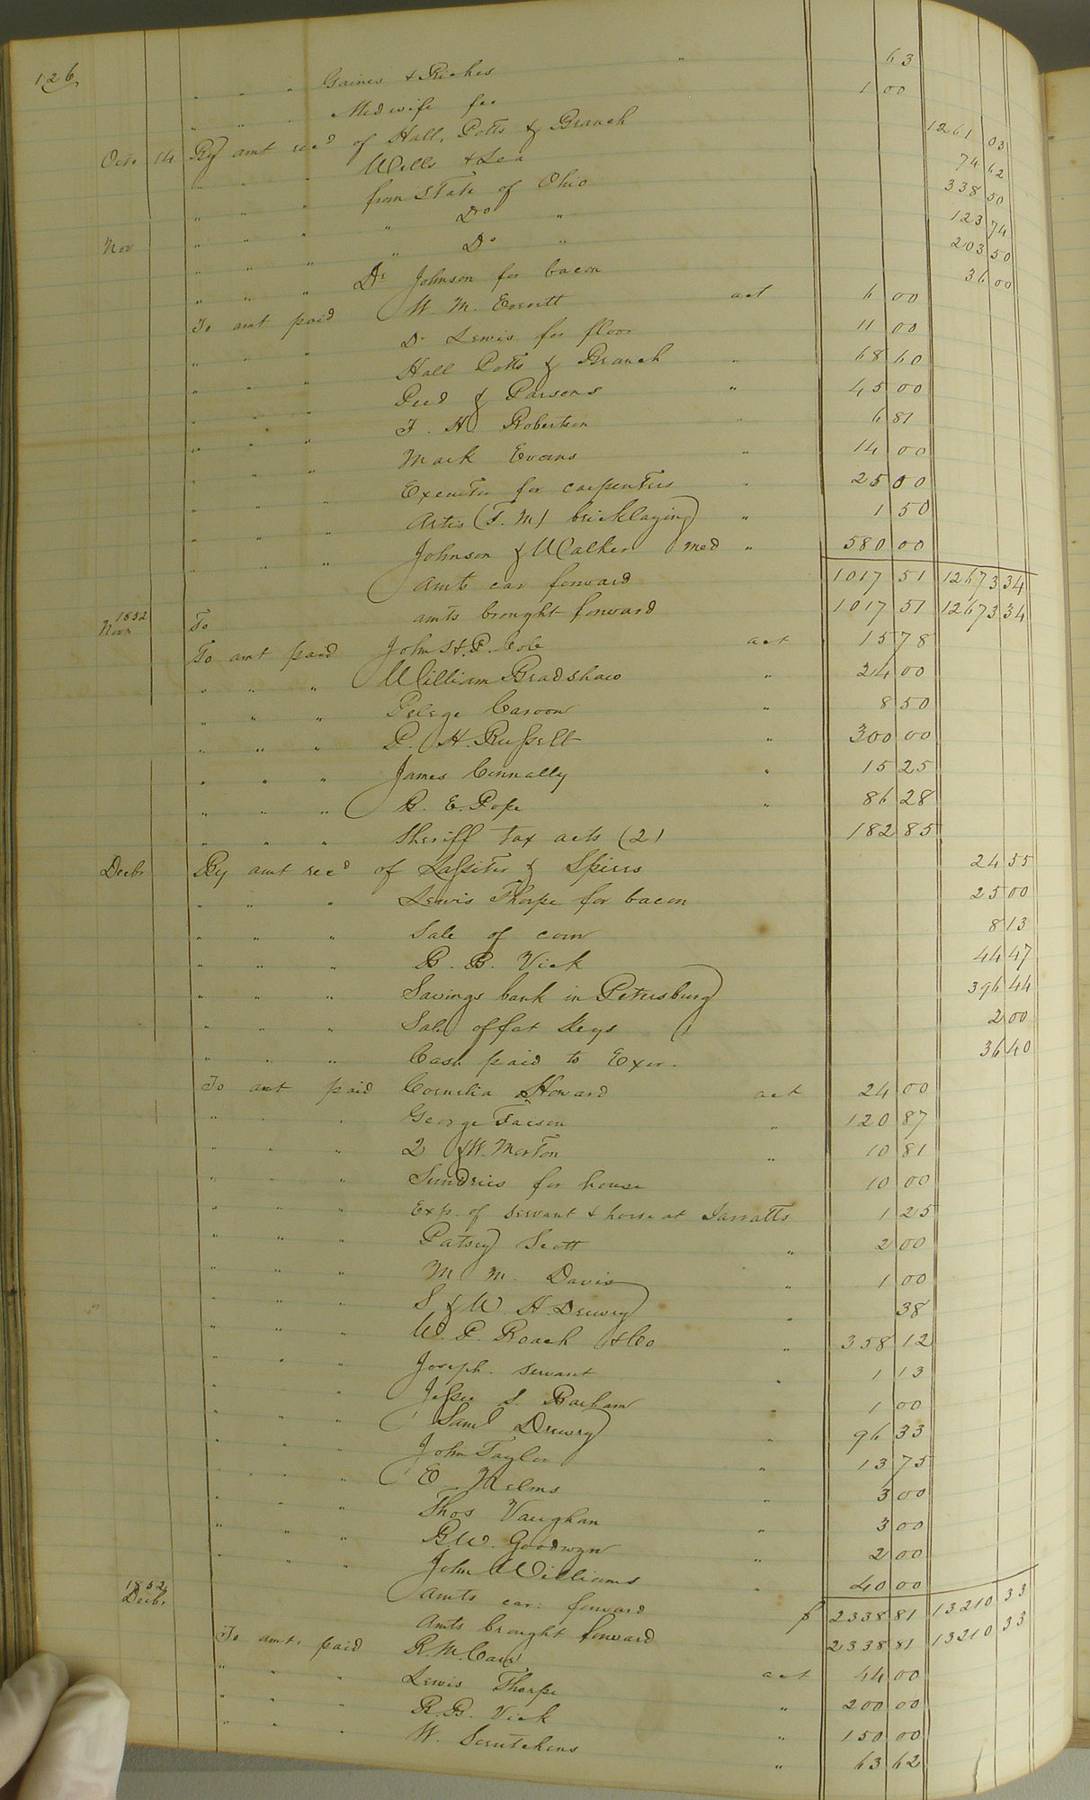 126
" " " Gaines & Riches " 63
" " " Medwife fee 1 00
Octr 14 By amt recd of Hall, Potts & Branch 1261 03
" " " Wells & Lea 74 62
" " " from State of Ohio 338 50
Nov " " " " Do " 123 74
" " " " Do " 203 50
" " " Dr Johnson for bacon 36 00
To amt paid W. M. Everitt act 6 00
" " " Dr Lewis for floor 11 00
" " " Hall Potts & Branch " 68 60
" " " Peed & Parsons " 45 00
" " " T. H. Robertson " 6 81
" " " Mark Evans " 14 00
" " " Executor for carpenters " 25 00
" " " Artis (T. M) bricklaying " 1 50
" " " Johnson & Walker med " 580 00
amts car forward 1017 51 12673 34
1852 Novr To amts brought forward 1017 51 12673 34
To amt paid John H. P. Cole act 15 78
" " " William Bradshaw " 24 00
" " " Pelege Caroon " 8 50
" " " P. H. Russell " 300 00
" " " James Connally " 15 25
" " " B. E. Pope " 86 28
" " " Sheriff tax acts (2) 182 85
Decbr By amt recd of Lassiter & Spiers 24 55
" " " Lewis Thorpe for bacon 25 00
" " " Sale of corn 8 13
" " " B. B. Vick 44 47
" " " Savings bank in Petersburg 396 44
" " " Sale of fat 2 00
" " " Cash paid to Exor. 36 40
To amt paid Cornelia Howard act 24 00
" " " George Faison " 120 87
" " " & W. Morton " 10 81
" " " Sundries for house 10 00
" " " Exp. of servant & horse at Jarratts 1 25
" " " Patsey Scott " 2 00
" " " M. M. Davis " 1 00
" " " S & W. H. Drewry " 38
" " " W. P. Roach & Co " 358 12
" " " Joseph. servant " 1 13
" " " Jesse S. Barham " 1 00
" " " Saml Drewry " 96 33
" " " John Taylor " 13 75
" " " E. Helms " 3 00
" " " Thos Vaughan " 3 00
" " " B. W. Goodwyn " 2 00
" " " John Williams " 40 00
amts car: forward $ 2338 81 13210 33
1852 Decbr. Amts brought forward 2338 81 13210 33
To amt. paid R. M. Carr act 44 00
" " " Lewis Thorpe " 200 00
" " " R. B. Vick " 150 00
" " " W. Scrutchens " 63 62